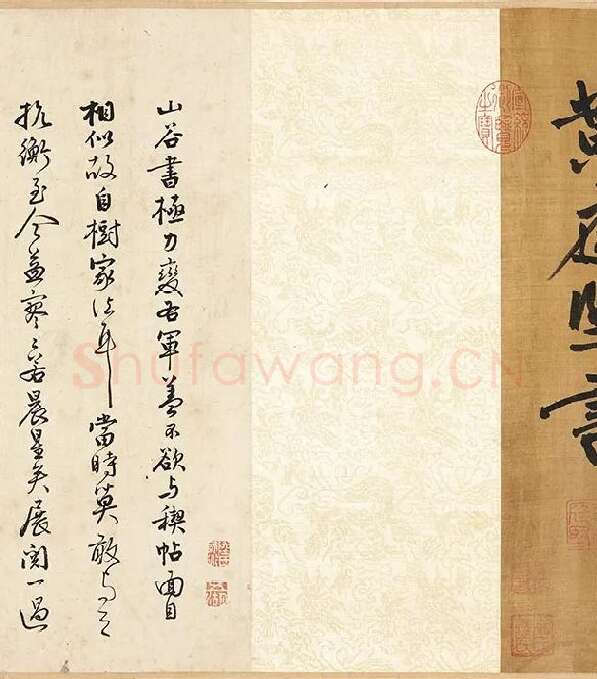 黄庭堅書
山谷書極力變右軍蓋不欲与稧帖面目
相似故自樹家法耳當時莫敢与之
抗衡至今益寥〻若晨星矣展閱一過
Shufawang.CN